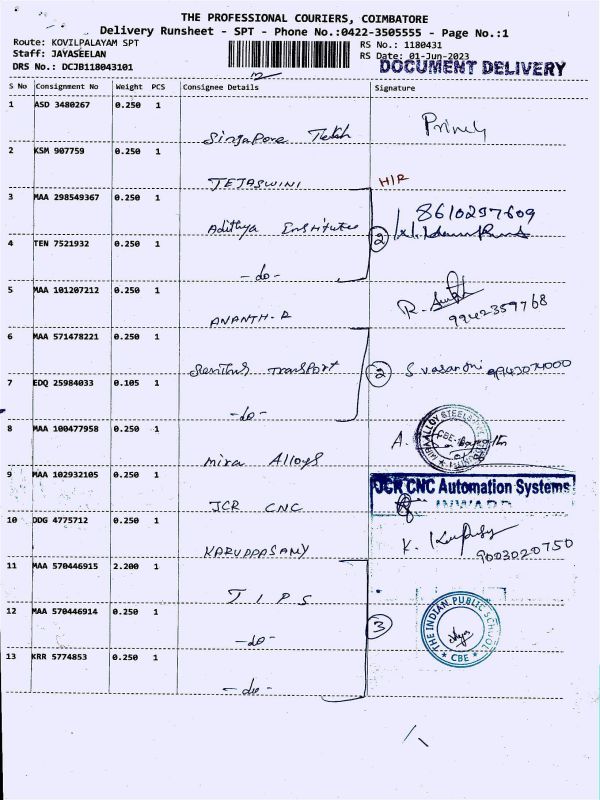 THE PROFESSIONAL COURIERS, COIMBATORE
Delivery Runsheet - SPT - Phone No.:0422-3505555 - Page No.:1
Route: KOVILPALAYAM SPT RS No.: 1180431
Staff: JAYASEELAN RS Date: 01-Jun-2023
DRS No.: DCJB118043101 DOCUMENT DELIVERY
S No Consignment No Weight PCS Consignee Details Signature
1 ASD 3480267 0.250 1
Singapore
2 KSM 907759 0.250 1
TEJASWINI H/R
3 MAA 298549367 0.250 1
Adithya Institute 2 8610297609
4 TEN 7521932 0.250 1
-do-
5 MAA 101207212 0.250 1
ANANTH-R R. 9942359768
6 MAA 571478221 0.250 1
Transport 2 S vasanthi
7 EDQ 25984033 0.105 1
-do-
8 MAA 100477958 0.250 1
Mira Alloys A.
CBE
9 MAA 102932105 0.250 1
JCR CNC JCR CNC Automation Systems
INWARD
10 DDG 4775712 0.250 1
KARUPPASAMY K. 9003020750
11 MAA 570446915 2.200 1
T I P S
12 MAA 570446914 0.250 1
-do- 3 THE INDIAN PUBLIC SCHOOL
CBE
13 KRR 5774853 0.250 1
-do-